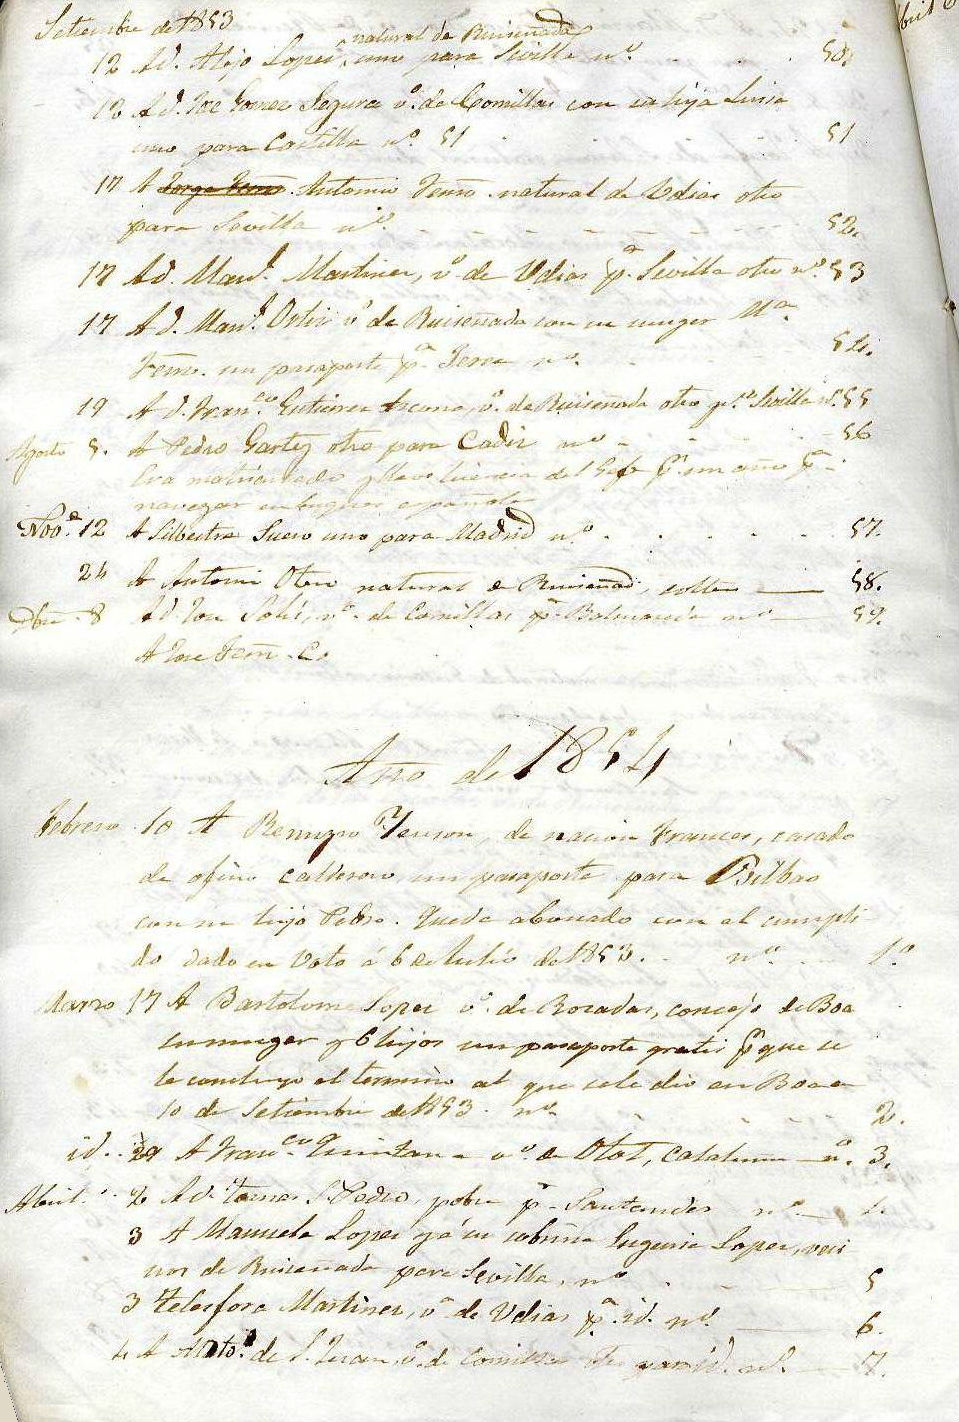 Setiembre de 1853
natural de Ruiseñada
12 A d. Alejo Lopez, uno para Sevilla nº. 50.
12 A d. Jose Gomez Segura vº. de Comillas con su hija Luisa
uno para Castilla nº. 51 51
17 A Jorge Fernz. Antonio Fernz. natural de Udias otro
para Sevilla nº. 52.
17 A d. Manl. Martinez, vº. de Udias pª. Sevilla otro nº. 53
17 A d. Manl. Ortiz vº. de Ruiseñada con su muger Mª.
Fernz. un pasaporte pª. Jerez nº. 54.
19 A d. Franco. Gutierrez, vº. de Ruiseñada otro pª. Sevilla nº. 55
Agosto 5. A Pedro otro para Cadiz nº 56
Era matriculado y llevo licencia del Gefe pr. un año pª.
navegar en buques españoles
Nove. 12 A Silbestre Suero uno para Madrid nº. 57.
24 A Antonio natural de Ruiseñada, soltero 58.
Dbre. 8 A d. Jose vº. de Comillas pª. nº 59.
A Jose Fern
Año de 1854
Febrero 10 A Remigio de nacion Frances, casado
de oficio calderero, un pasaporte para Bilbao
con su hijo Pedro. Queda abonado con el cumpli
do dado en Voto á 6 de Julio de 1853. nº. 1º
Marzo 17 A Bartolome Lopez vº. de concejo de Boa
su muger y 6 hijos un pasaporte gratis pr. que se
le concluyo el termino al que se le dio en Boa en
10 de Setiembre de 1853. nº. 2.
id. 29 A Franco. Quintana vº. de Olot, Cataluna nº. 3.
Abril 2 A d. Tomas S. Pedro, pobre pª. Santander nº.
3 A Manuela Lopez y á su sobrina Eugenia Lopez, veci
nas de Ruiseñada para Sevilla, nº. 5
3 Telesfora Martinez, vª. de Udias pª. id. nº. 6.
4 A Antº. de S. Juan, vº. de Comillas otro para id. nº. 7.